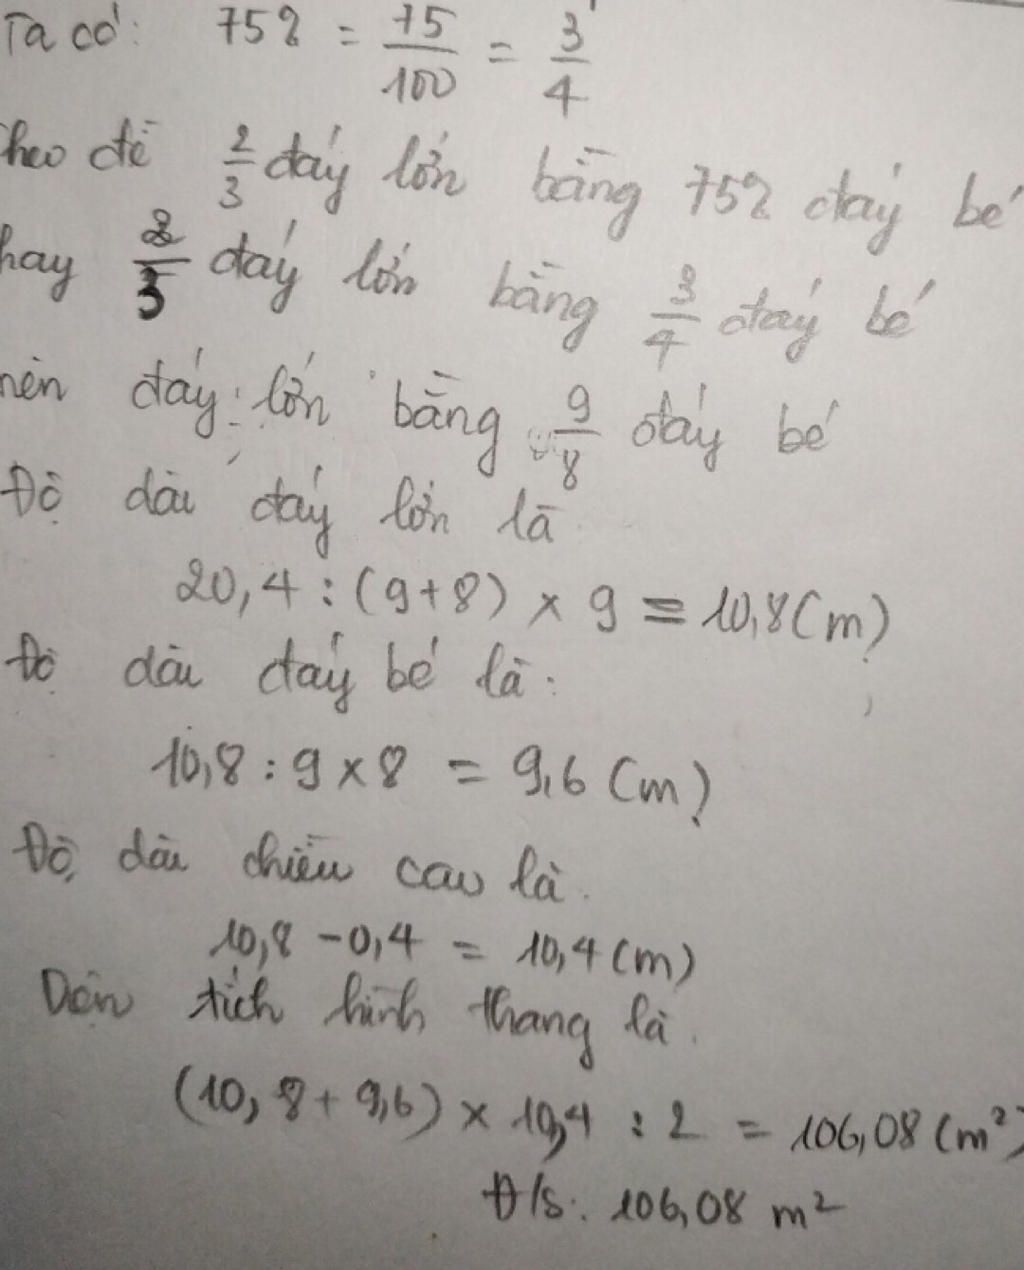 Ta có: 75% = 75/100 = 3/4
heo đề 2/3 đáy lớn bằng 75% đáy bé
hay 2/3 đáy lớn bằng 3/4 đáy bé
nên đáy lớn bằng 9/8 đáy bé
Độ dài đáy lớn là
20,4 : (9+8) x 9 = 10,8 (m)
Độ dài đáy bé là:
10,8 : 9 x 8 = 9,6 (m)
Độ dài chiều cao là.
10,8 - 0,4 = 10,4 (m)
Diện tích hình thang là.
(10,8 + 9,6) x 10,4 : 2 = 106,08 (m²)
Đ/s: 106,08 m²